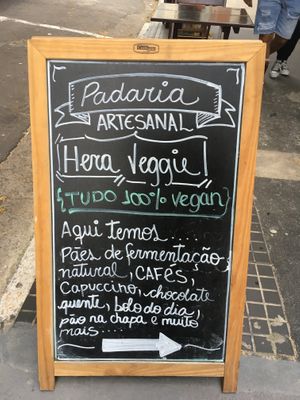 Padaria
ARTESANAL
Hera Veggie!
{TUDO 100% vegan}
Aqui temos....
Pães de fermentação
natural, CAFÉS,
Capuccino, chocolate
quente, bolo do dia,
pão na chapa e muito
mais....